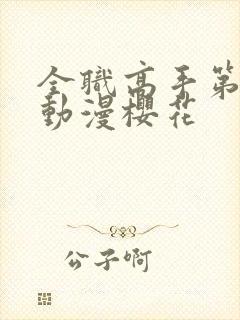 全職高手第
動漫櫻花
公子啊